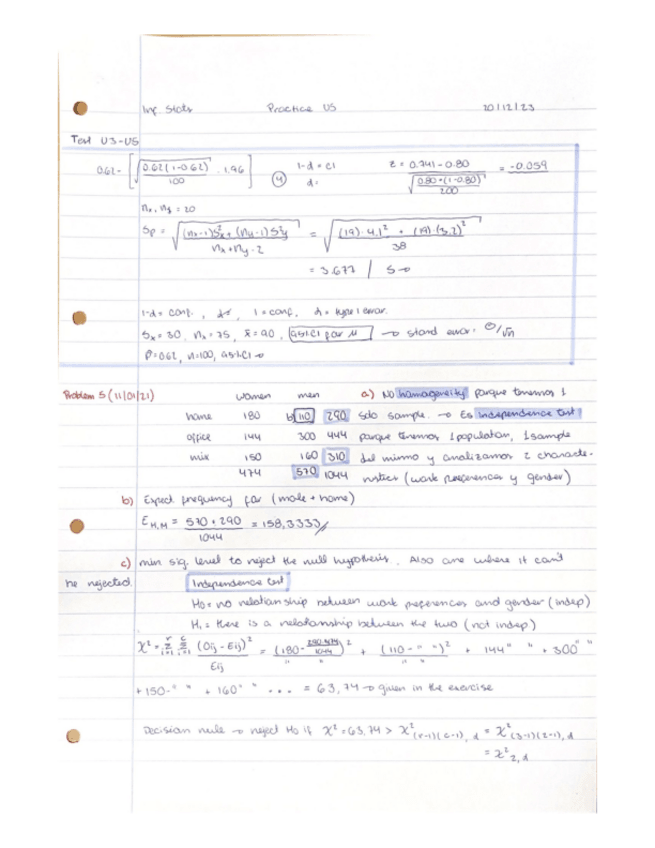 Inf Stats Practice U5 20/12/23
Test U3-U5
0.62- [√(0.62(1-0.62)/100) · 1.96] ④ 1-α = CI z = 0.741-0.80 / √(0.80·(1-0.80)/200) = -0.059
α=
nx, ny = 20
Sp = √((nx-1)S²x + (ny-1)S²y / nx+ny-2) = √((19)·4.1² + (19)·(3.2)² / 38)
= 3.677 / S→
1-α = conf., 1 = conf, α = type I error.
Sx = 30, nx = 75, x̄ = 90, 95% CI for μ → stand error: σ/√n
p = 0.62, n=100, 95% CI →
Problem 5 (11/01/21) women men a) NO homogeneity porque tenemos 1
home 180 b) 110 290 solo sample. → Es independence test
office 144 300 444 porque tenemos 1 population, 1 sample
mix 150 160 310 del mismo y analizamos 2 characte-
474 570 1044 ristics (work preferences y gender)
b) Expect frequency for (male + home)
EH,M = 570 · 290 / 1044 = 158,3333
c) min sig. level to reject the null hypothesis. Also one where it can't
be rejected. Independence test
H0 = no relationship between work preferences and gender (indep)
H1 = there is a relationship between the two (not indep)
χ² = Σ Σ (Oij - Eij)² / Eij = (180 - 290·474/1044)² / " " + (110 - " ")² / " " + 144 " " + 300 " "
+ 150 - " " + 160 " " ... = 63,74 → given in the exercise
Decision rule → reject H0 if χ² = 63,74 > χ²(r-1)(c-1), α = χ²(3-1)(2-1), α
= χ²2,α